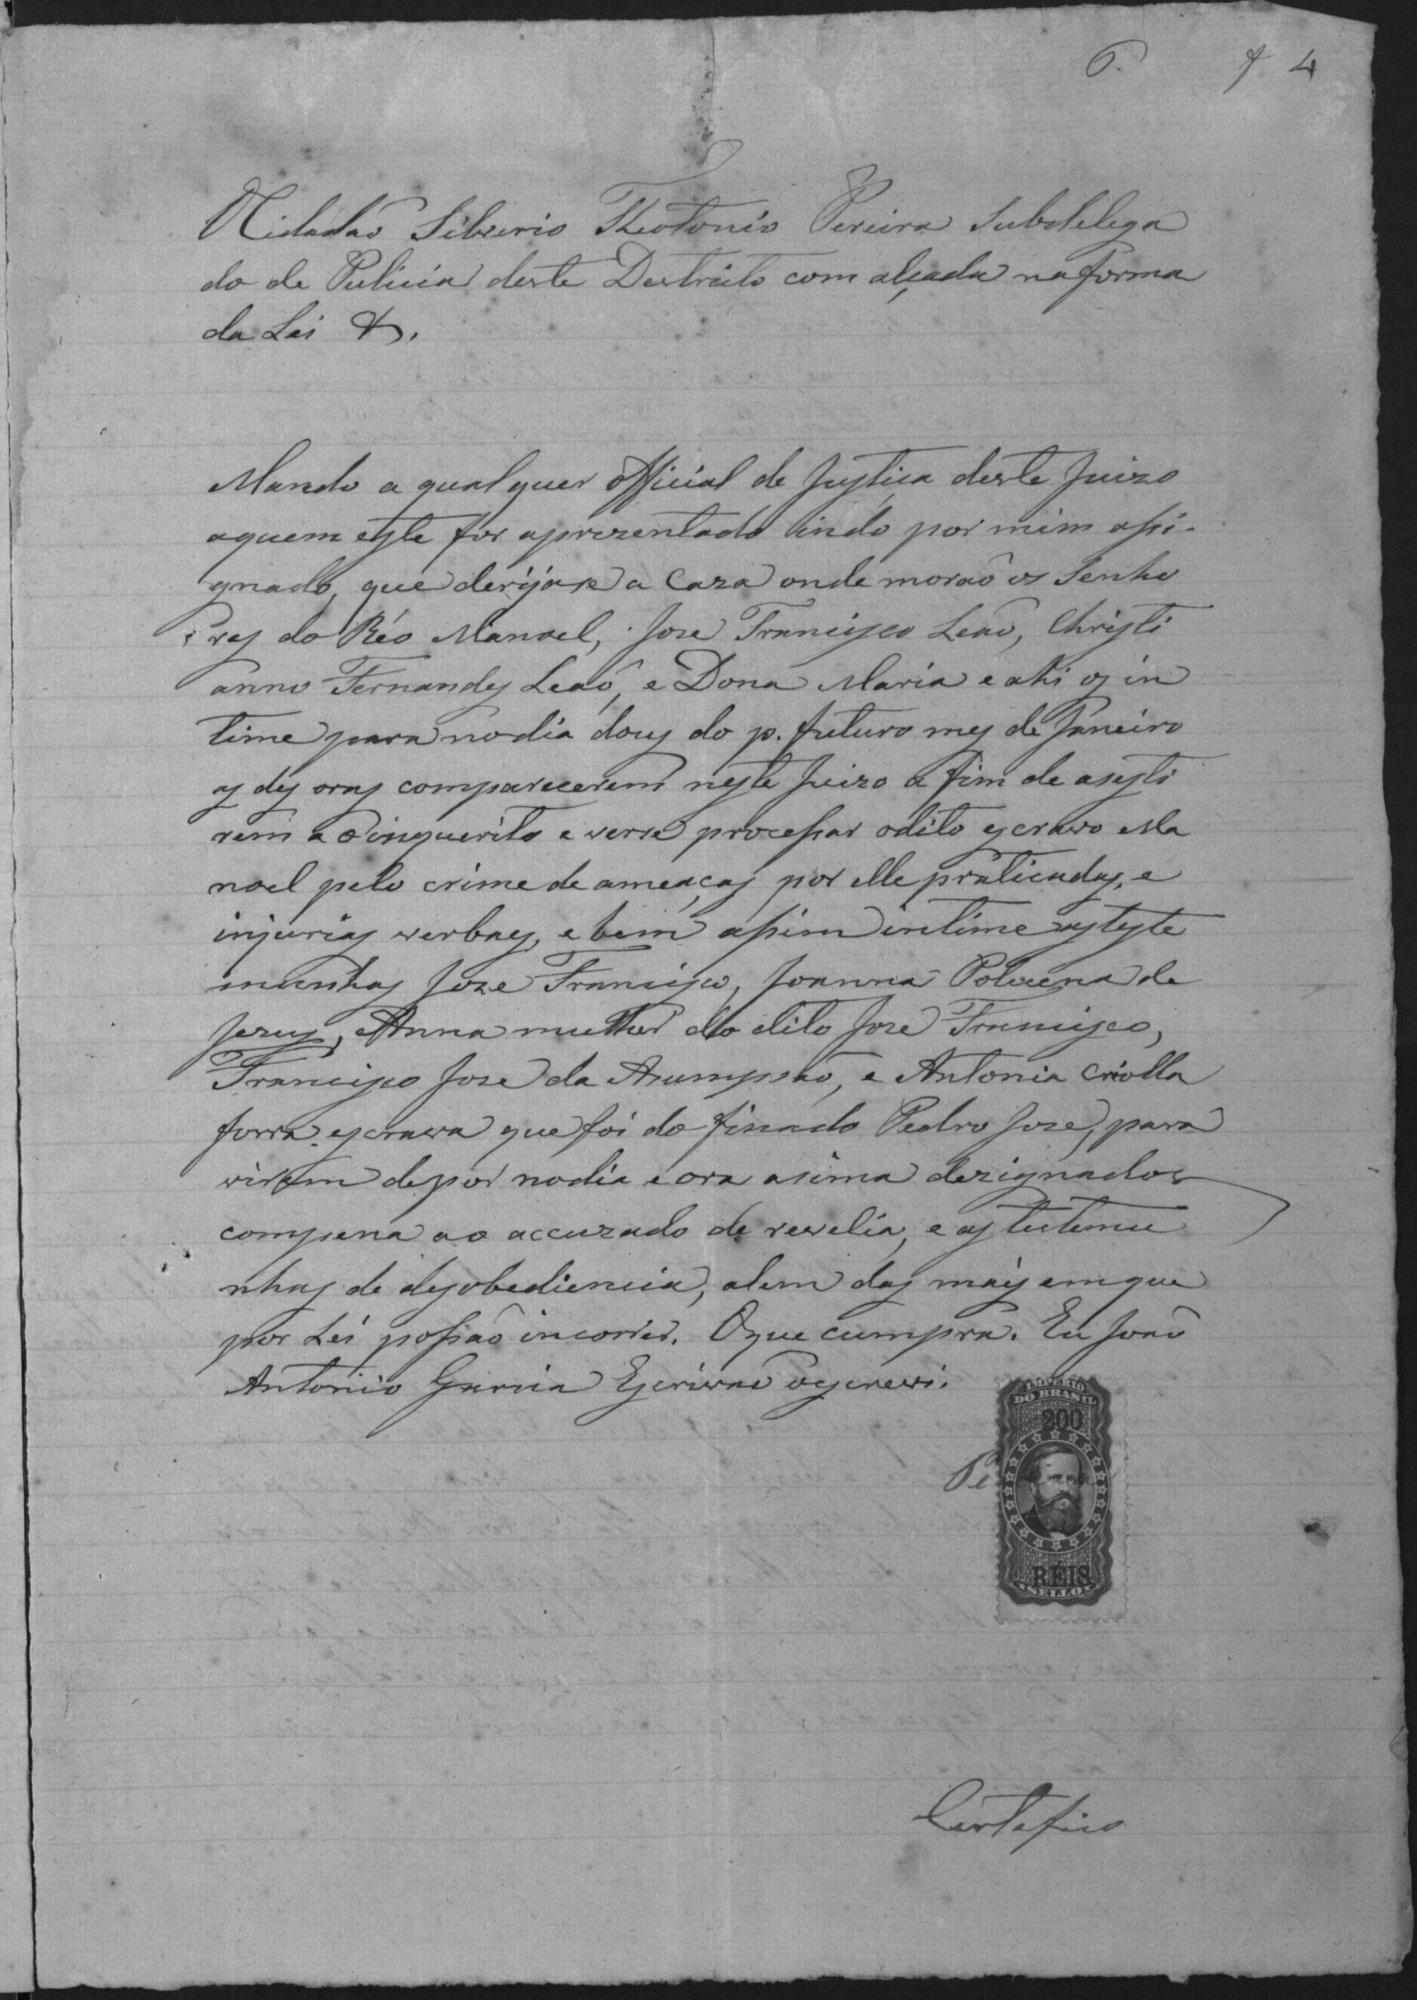 6. f 4
Cidadaõ Silverio Theotonio Pereira Subdelega
do de Pulicia deste Destricto com alçada na forma
da Lei &.
Mando a qual quer official de Justiça deste Juizo
aquem este for aprezentado indo por mim assi-
gnado, que derijase a Caza onde moraõ os Senho
res do Réo Manoel, Joze Francisco Leaõ, Christi
anno Fernandes Leaõ, e Dona Maria e ahi os in
time para no dia dous do p. futuro mes de Janeiro
as des oras comparecerem neste Juizo a fim de asesti
rem a o inquerito e verse processar odito escravo Ma
noel pelo crime de ameaças por elle praticadas, e
injurias verbaes, e bem assim intime as teste
munhas Joze Francisco, Joanna Polucena de
Jezus, Anna mulher do dito Joze Francisco,
Francisco Joze da Asumpsaõ, e Antonia criolla
forra escrava que foi do finado Pedro Joze, para
virem depor no dia e ora asima dezignados
compena ao accuzado de revelia, e as testemu
nhas de desobediencia, alem das mais emque
por Lei possaõ incorrer. Oque cumpra. Eu Joaõ
Antonio Garcia Escrivaõ oescrevi.
IMPERIO
DO BRASIL
200
Pe
RÉIS
SELLO
Certefico